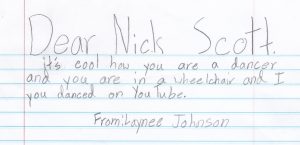 Dear Nick Scott.
it's cool how you are a dancer
and you are in a wheelchair and I
you danced on YouTube.
From: Laynee Johnson